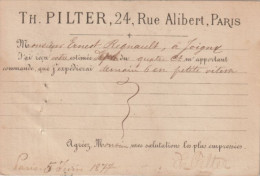 TH. PILTER, 24, Rue Alibert, PARIS
Monsieur Ernest Regnault, à Joigny
J'ai reçu votre estimée du quatre ct m'apportant
commande que j'expédierai demain en petite vitesse
Agréez, Monsieur mes salutations les plus empressées.
Th. Pilter
Paris 5